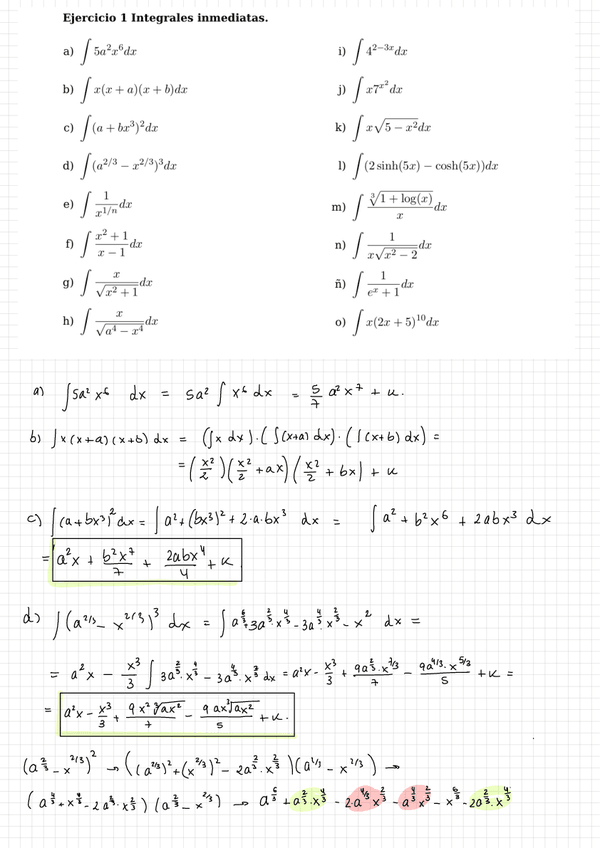 Ejercicio 1 Integrales inmediatas.
a) ∫ 5a²x⁶dx
b) ∫ x(x + a)(x + b)dx
c) ∫ (a + bx³)²dx
d) ∫ (a^{2/3} − x^{2/3})³dx
e) ∫ 1/x^{1/n} dx
f) ∫ (x² + 1)/(x − 1) dx
g) ∫ x/√(x² + 1) dx
h) ∫ x/√(a⁴ − x⁴) dx
i) ∫ 4^{2−3x}dx
j) ∫ x7^{x²}dx
k) ∫ x√(5 − x²)dx
l) ∫ (2 sinh(5x) − cosh(5x))dx
m) ∫ ∛(1 + log(x))/x dx
n) ∫ 1/(x√(x² − 2)) dx
ñ) ∫ 1/(eˣ + 1) dx
o) ∫ x(2x + 5)¹⁰dx
a) ∫5a² x⁶ dx = 5a² ∫ x⁶ dx = 5/7 a² x⁷ + k.
b) ∫x (x+a) (x+b) dx = (∫x dx)·(∫(x+a) dx)·(∫(x+b) dx) =
= (x²/2)(x²/2 + ax)(x²/2 + bx) + k
c) ∫(a+bx³)² dx = ∫ a²+(bx³)² + 2·a·bx³ dx = ∫ a² + b²x⁶ + 2abx³ dx
= a²x + b²x⁷/7 + 2abx⁴/4 + k
d) ∫(a^{2/3} − x^{2/3})³ dx = ∫ a^{6/3} + 3a^{2/3}·x^{4/3} − 3a^{4/3}·x^{2/3} − x² dx =
= a²x − x³/3 ∫ 3a^{2/3}·x^{4/3} − 3a^{4/3}·x^{2/3} dx = a²x − x³/3 + 9a^{2/3}·x^{7/3}/7 − 9a^{4/3}·x^{5/3}/5 + k =
= a²x − x³/3 + 9x²∛(ax²)/7 − 9ax∛(ax²)/5 + k.
(a^{2/3} − x^{2/3})² → ((a^{2/3})² + (x^{2/3})² − 2a^{2/3}·x^{2/3})(a^{2/3} − x^{2/3}) →
(a^{4/3} + x^{4/3} − 2a^{2/3}·x^{2/3})(a^{2/3} − x^{2/3}) → a^{6/3} + a^{2/3}·x^{4/3} − 2·a^{4/3}x^{2/3} − a^{4/3}x^{2/3} − x^{6/3} − 2a^{2/3}·x^{4/3}